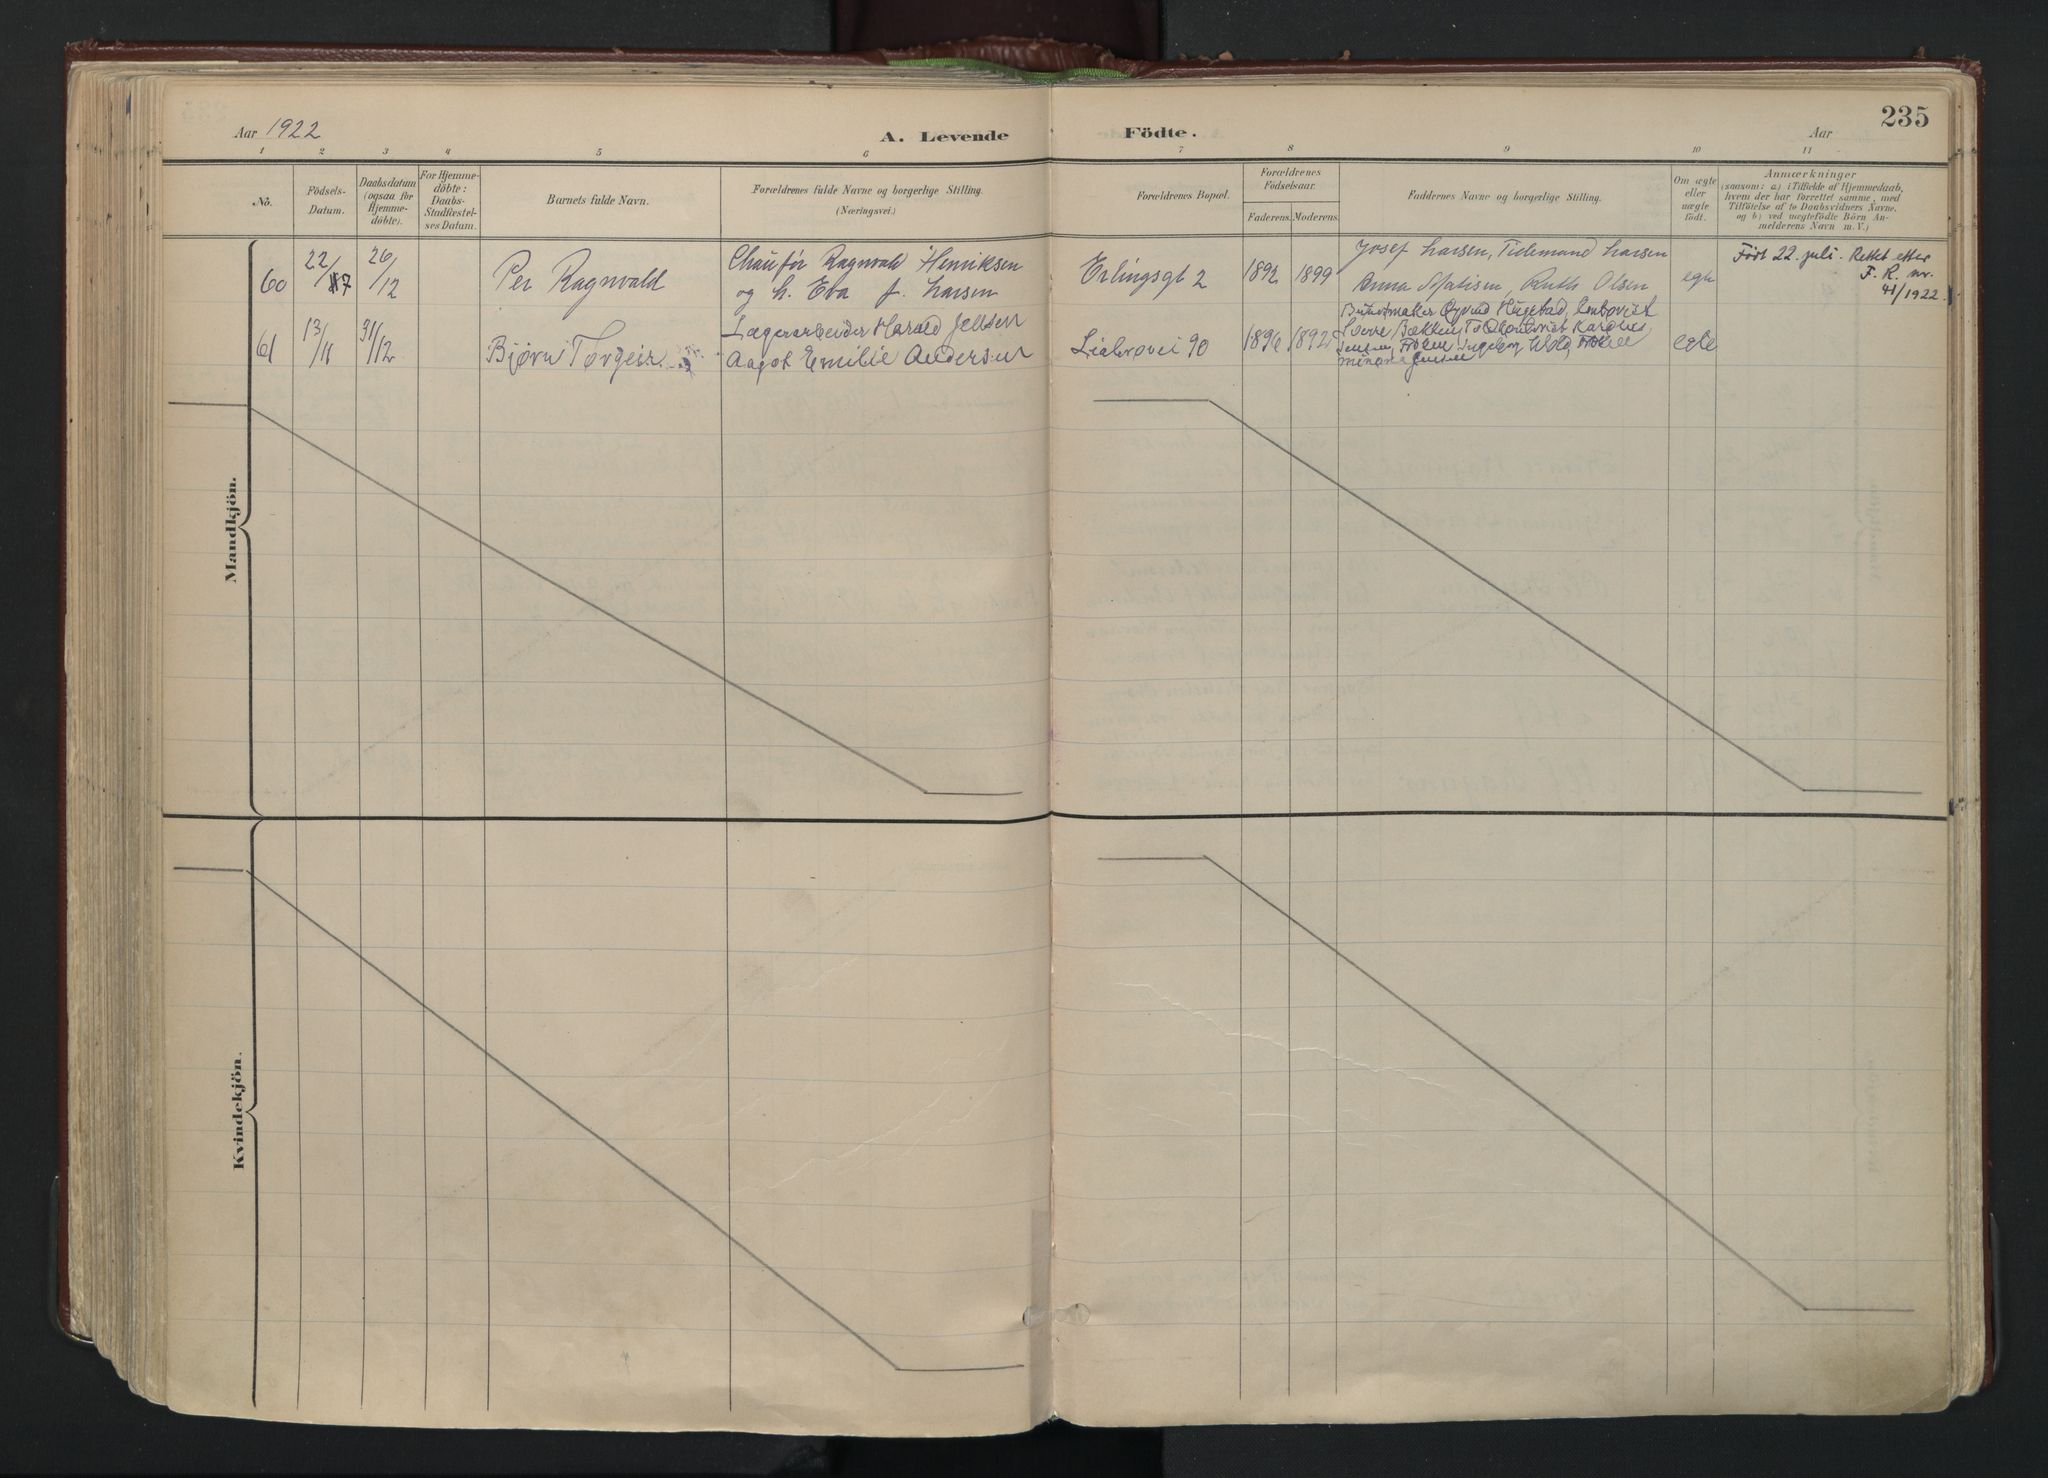 235
Aar 1922
A. Levende
Födte.
Aar
1 2 3 4 5 6 7 8 9 10 11
No.
Födsels-
Datum.
Daabsdatum
(ogsaa for
Hjemme-
döbte).
For Hjemme-
döbte:
Daabs-
Stadfæstel-
ses Datum.
Barnets fulde Navn.
Forældrenes fulde Navne og borgerlige Stilling.
(Næringsvei.)
Forældrenes Bopæl.
Forældrenes
Födselsaar.
Faderens. Moderens.
Faddernes Navne og borgerlige Stilling.
Om ægte
eller
uægte
födt.
Anmærkninger
(saasom: a) i Tilfælde af Hjemmedaab,
hvem der har forrettet samme, med
Tilföielse af to Daabsvidners Navne,
og b) ved uægtefödte Börn An-
melderens Navn m. V.)
Mandkjön.
60
22/7
26/12
Per Ragnvald
Chaufför Ragnvald Henriksen
og h. Eva f. Larsen
Erlingsgt 2
1892
1899
Josef Larsen, Tidemand Larsen
Anna Matisen, Ruth Olsen
egte
Født 22. juli. Rettet etter
F. R. nr.
41/1922.
61
13/11
31/12
Bjørn Torgeir
Lagerarbeider Harald Jensen
Aagot Emilie Andersen
Liabrovei 90
1896
1892
Øyvind
Sverre Bækken
Jensen, Frøken Ingeborg
Jensen
egte
Kvindekjön.